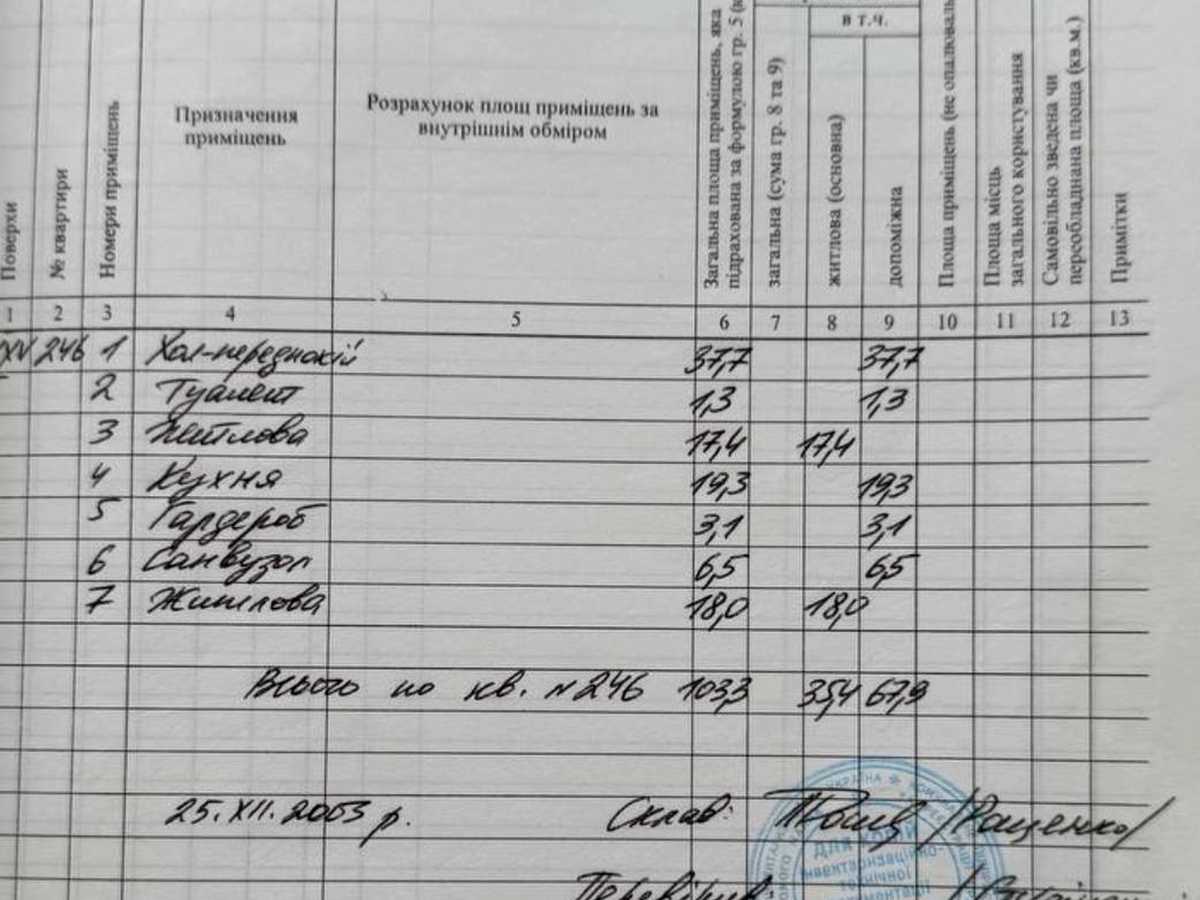 в т.ч.
Поверхи
№ квартири
Номери приміщень
Призначення
приміщень
Розрахунок площ приміщень за
внутрішнім обміром
Загальна площа приміщень, яка
підрахована за формулою гр. 5
загальна (сума гр. 8 та 9)
житлова (основна)
допоміжна
Площа приміщень (не опалюваль
Площа місць
загального користування
Самовільно зведена чи
переобладнана площа (кв.м.)
Примітки
1 2 3 4 5 6 7 8 9 10 11 12 13
XV 246 1 Хол-передпокій 37,7 37,7
2 Туалет 1,3 1,3
3 Житлова 17,4 17,4
4 Кухня 19,3 19,3
5 Гардероб 3,1 3,1
6 Санвузол 6,5 6,5
7 Житлова 18,0 18,0
Всього по кв. №246 103,3 35,4 67,9
25.XII.2003 р. Склав: /Ращенко/
Перевірив:
УКРАЇНА
для копій
інвентаризаційно-
технічної
документації